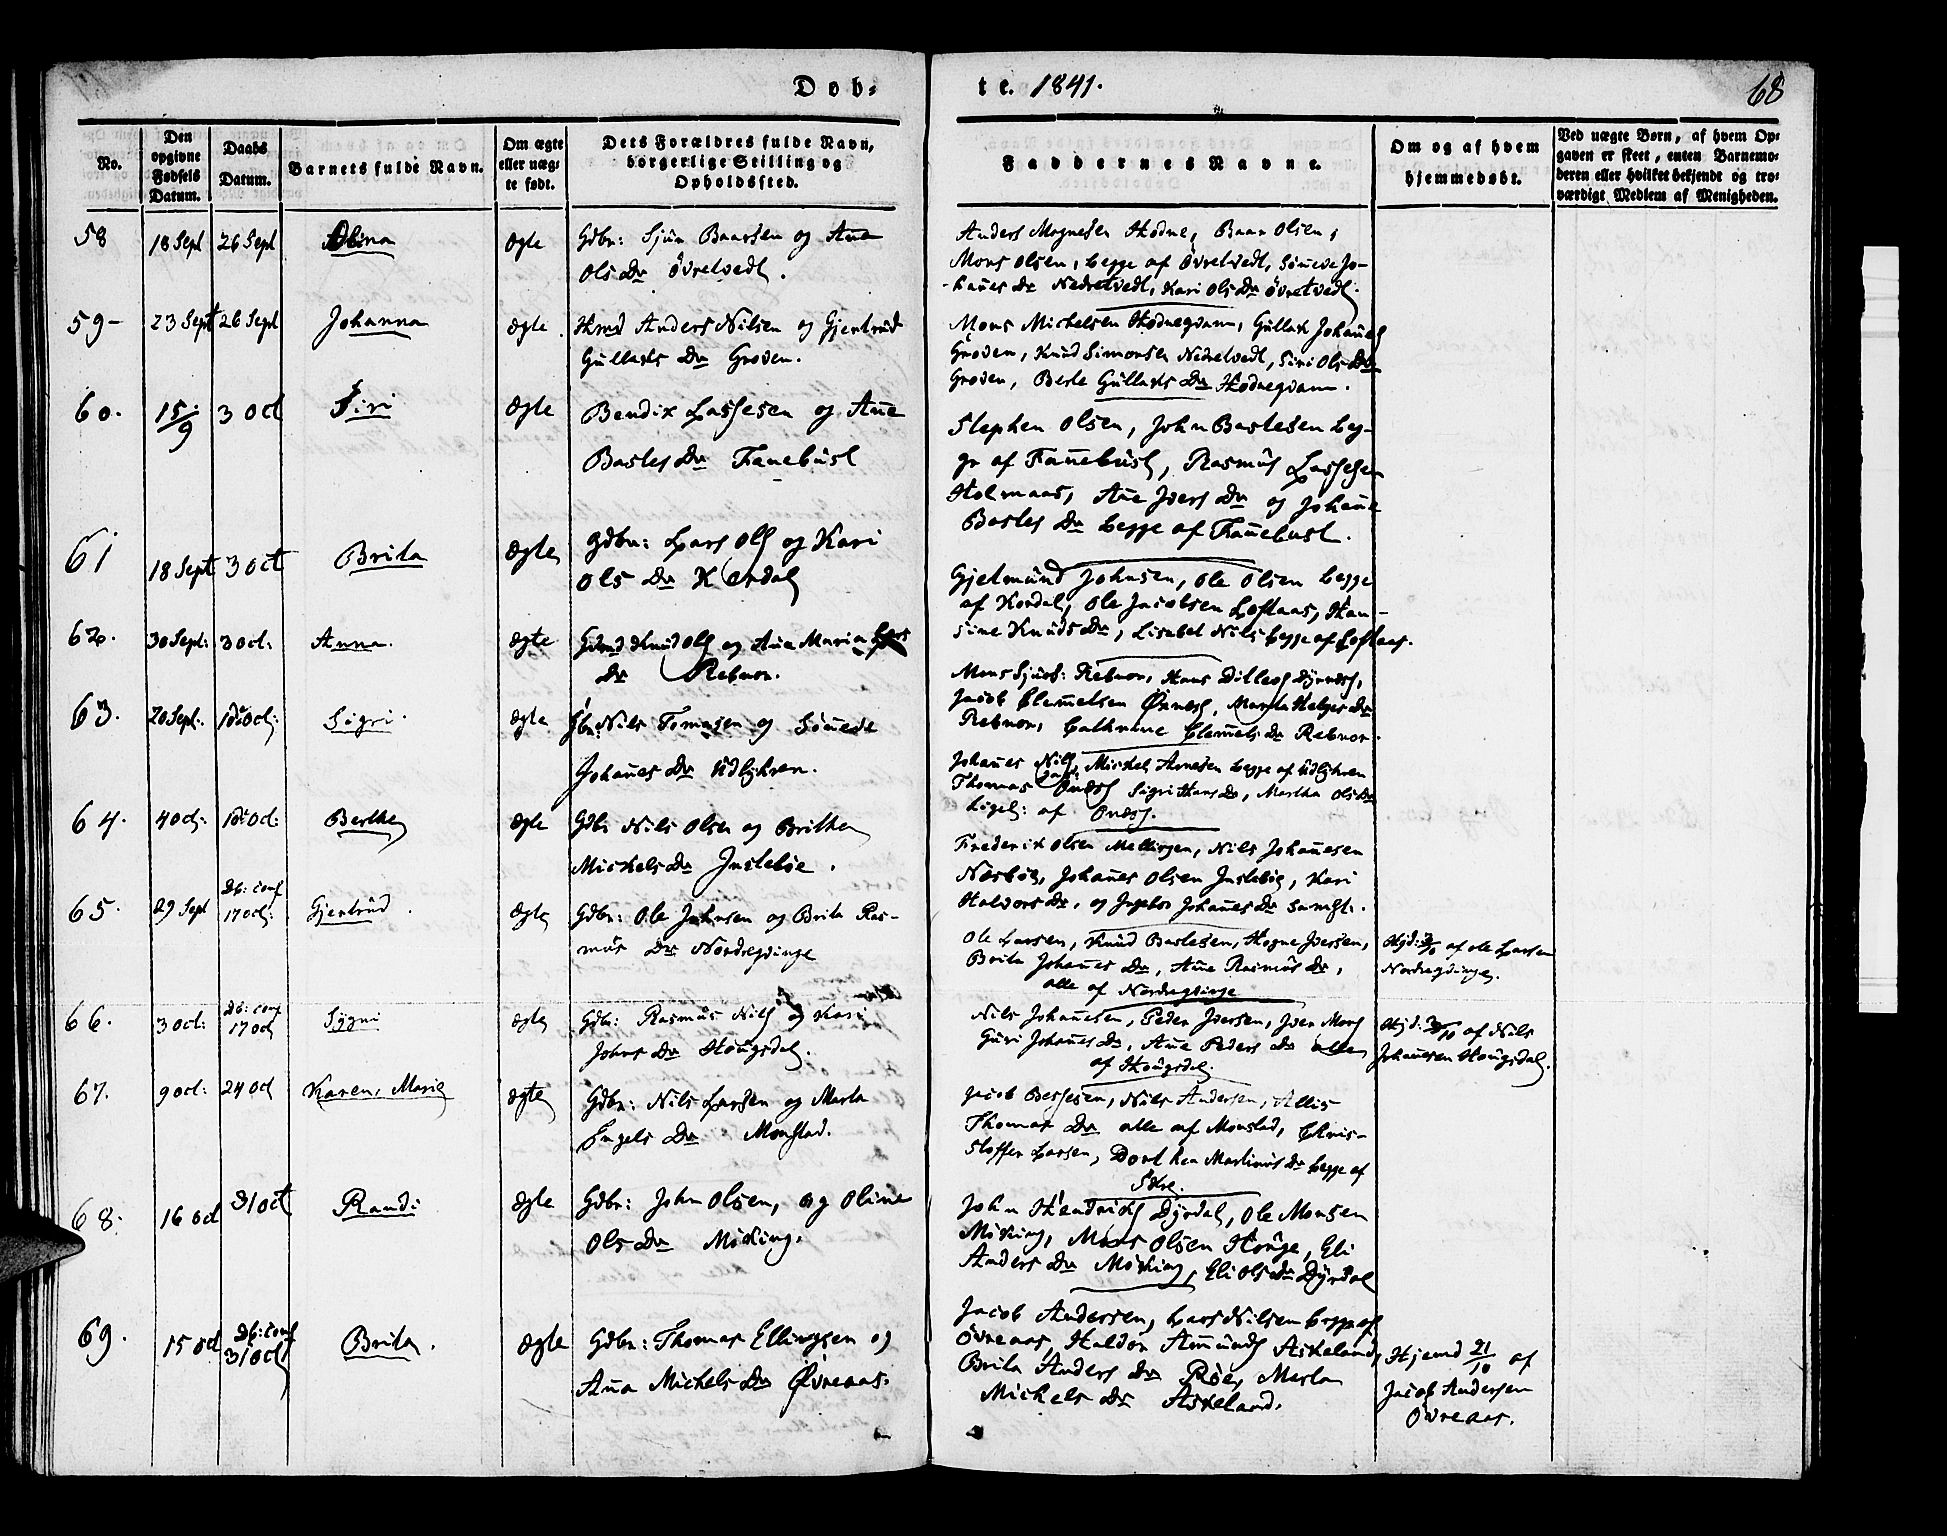 Døb-
te. 1841.
68
No.
Den opgivne Fødsels Datum.
Daabs Datum.
Barnets fulde Navn.
Om ægte eller uægte født.
Dets Forældres fulde Navn, borgerlige Stilling og Opholdssted.
Faddernes Navne.
Om og af hvem hjemmedøbt.
Ved uægte Børn, af hvem Opgaven er skeet, enten Barnemoderen eller hvilket bekjendt og troværdigt Medlem af Menigheden.
58 18 Sept 26 Sept Olina Ægte Gdbr: Sjur Baarsen og Ane
Ols Dr Øvretvedt.
Anders Mognesen Hodne, Baar Olsen,
Mons Olsen, begge af Øvretvedt, Sineve Jo-
hanes Dr Nedretvedt, Kari Ols Dr Øvretvedt.
59- 23 Sept 26 Sept Johanna Ægte. Hmd Anders Nilsen og Gjertrud
Gullaks Dr Groven.
Mons Michelsen Hodnegvam, Gullak Johanes
Groven, Knud Simonsen Nedretvedt, Siri Ols Dr
Groven, Berte Gullaks Dr Hodnegvam.
60. 15/9 3 Oct Siri Ægte Bendix Lassesen og Ane
Bastes Dr Fanebust
Stephen Olsen, John Bastesen beg-
ge af Fanebust, Rasmus Lassesen
Holmaas, Ane Ivers Dr og Johane
Bastes Dr begge af Fanebust.
61 18 Sept 3 Oct Brita Ægte Gdbr: Lars Ols og Kari
Ols Dr Kordal
Gjetmund Johnsen, Ole Olsen begge
af Kordal, Ole Jacobsen Loftaas, Han-
sine Knuds Dr, Lisabet Nils begge af Loftaas.
62. 30 Sept: 3 Oct: Anna. Ægte Gdmd Knud Ols og Ane Maria Lars
Dr Rebnor.
Mons Sjurs: Rebnor, Hans Ditlevs Dyrnes,
Jacob Clemetsen Øxnes, Marita Helges Dr
Rebnor, Cathrine Clemets Dr Rebnor.
63. 20 Sept: 10 Oct: Sigri. Ægte Gbr: Nils Tomasen og Sønneve
Johanes Dr Udljhren.
Johanes Nils, Michel Arnesen begge af Udljhren
Thomas Ols: Ones Sigri Hans Dr, Martha Ols Dr
ligel: af Ones.
64. 4 Oct: 10 Oct: Berthe Ægte Gdb: Nils Olsen og Brithe
Mickels Dr Justeböe.
Frederik Olsen Mellingen, Nils Johanesen
Næsbö, Johanes Olsen Justebö, Kari
Halvors Dr, og Ingebor Johanes Dr samst:.
65. 29 Sept Db: conf 17 Oct: Gjertrud. Ægte Gdbr: Ole Johnsen og Brita Ras-
mus Dr Nordregvinge
Ole Larsen, Knud Bastesen, Hogne Iversen,
Brita Johanes Dr, Ane Rasmus Dr,
alle af Nordregvinge
Hjd: af Ole Larsen
Nordregvinge.
66. 3 Oct: Db: conf 17 Oct Sygni Ægte Gdbr: Rasmus Nils og Kari
Johns Dr Hougsdal.
Nils Johanesen, Peder Iversen, Iver Mons
Guri Johanes Dr, Ane Peders Dr alle
af Hougsdal.
Hjd: af Nils
Johanesen Hougsdal.
67. 9 Oct: 24 Oct Karen, Marie Ægte Gdbr: Nils Larsen og Marta
Engels Dr Monstad.
Jacob Bessesen, Nils Andersen, Allis
Thomas Dr alle af Monstad, Chris-
toffer Larsen, Dorthea Martinus Dr begge af
Sære.
68. 16 Oct 31 Oct Randi Ægte Gdbr: John Olsen, og Oline
Ols Dr Möking.
John Hendrichs Dyrdal, Ole Monsen
Möking, Mons Olsen Houge, Eli
Anders Dr Möking, Eli Ols Dr Dyrdal
69. 15 Oct Db: conf 31 Oct Brita. Ægte Gdbr: Thomas Ellingsen og
Ana Michels Dr Øvreaas.
Jacob Andersen, Lars Nilsen begge af
Øvreaas, Haldor Amunds Askeland,
Brita Anders Dr Röe, Marta
Michels Dr Askeland.
Hjemd 21/10 af
Jacob Andersen
Øvreaas.